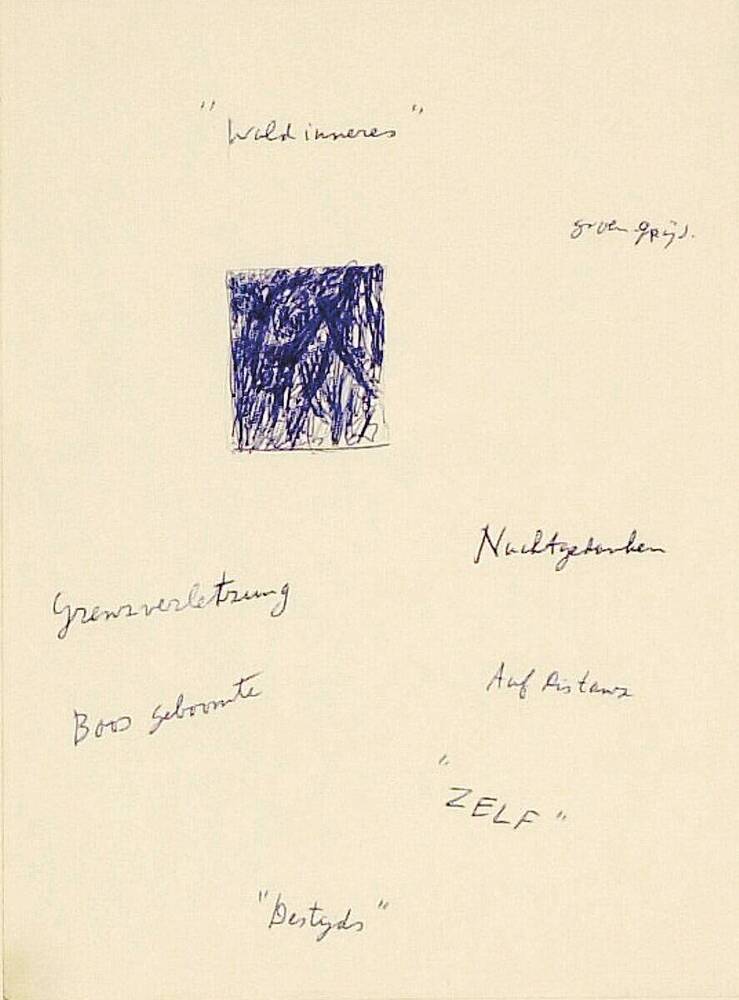 "Waldinneres"
groen grijs.
Nachtgedanken
Grensverletzung
Auf Distanz
Boos geboomte
"ZELF"
"Destyds"